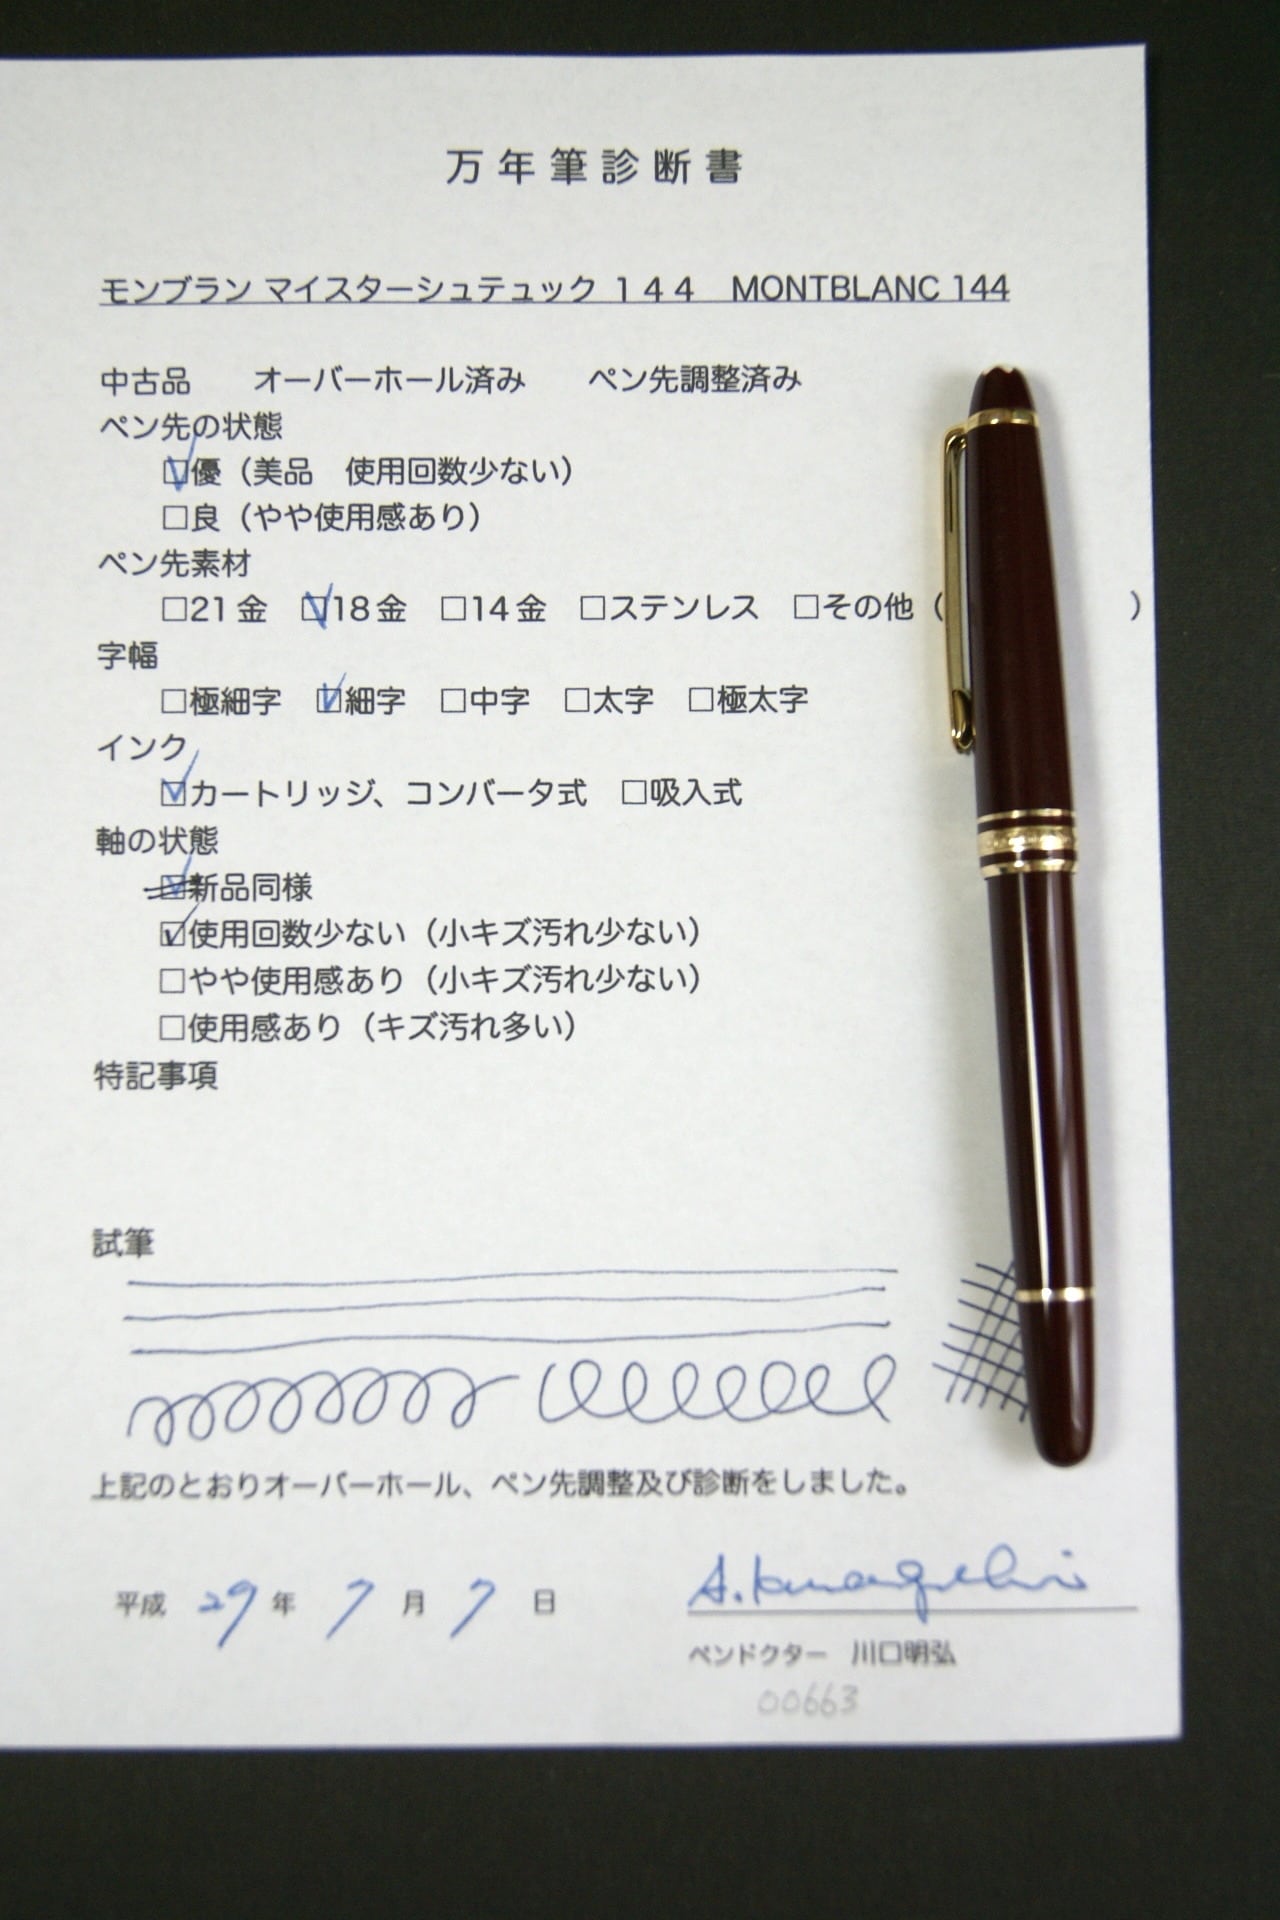 万年筆診断書
モンブラン マイスターシュテュック 144 MONTBLANC 144
中古品 オーバーホール済み ペン先調整済み
ペン先の状態
☑優（美品 使用回数少ない）
□良（やや使用感あり）
ペン先素材
□21金 ☑18金 □14金 □ステンレス □その他（ ）
字幅
□極細字 ☑細字 □中字 □太字 □極太字
インク
☑カートリッジ、コンバータ式 □吸入式
軸の状態
☑新品同様
☑使用回数少ない（小キズ汚れ少ない）
□やや使用感あり（小キズ汚れ少ない）
□使用感あり（キズ汚れ多い）
特記事項
試筆
上記のとおりオーバーホール、ペン先調整及び診断をしました。
平成 29 年 7 月 7 日
A. Kawaguchi
ペンドクター 川口明弘
00663